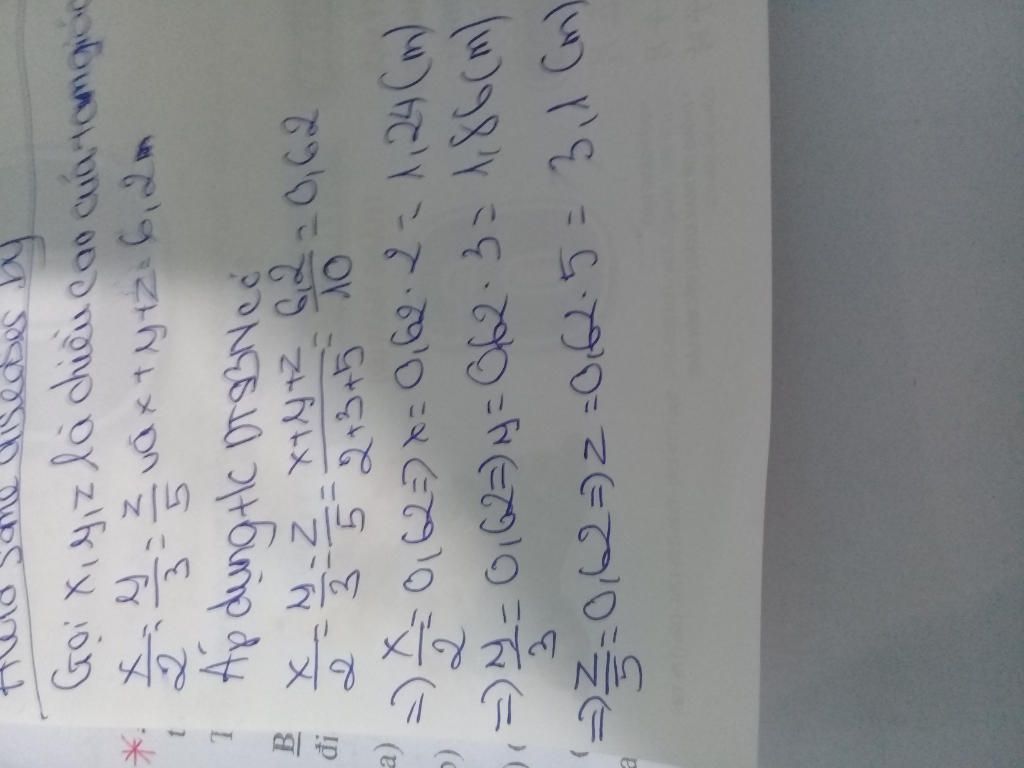 some diseases by
Gọi x, y, z là chiều cao của tam giác
x/2 = y/3 = z/5 và x + y + z = 6,2m
Áp dụng t/c DTSBN có
x/2 = y/3 = z/5 = x+y+z/2+3+5 = 6,2/10 = 0,62
=> x/2 = 0,62 => x = 0,62 . 2 = 1,24 (m)
=> y/3 = 0,62 => y = 0,62 . 3 = 1,86 (m)
=> z/5 = 0,62 => z = 0,62 . 5 = 3,1 (m)
B
đi
a)